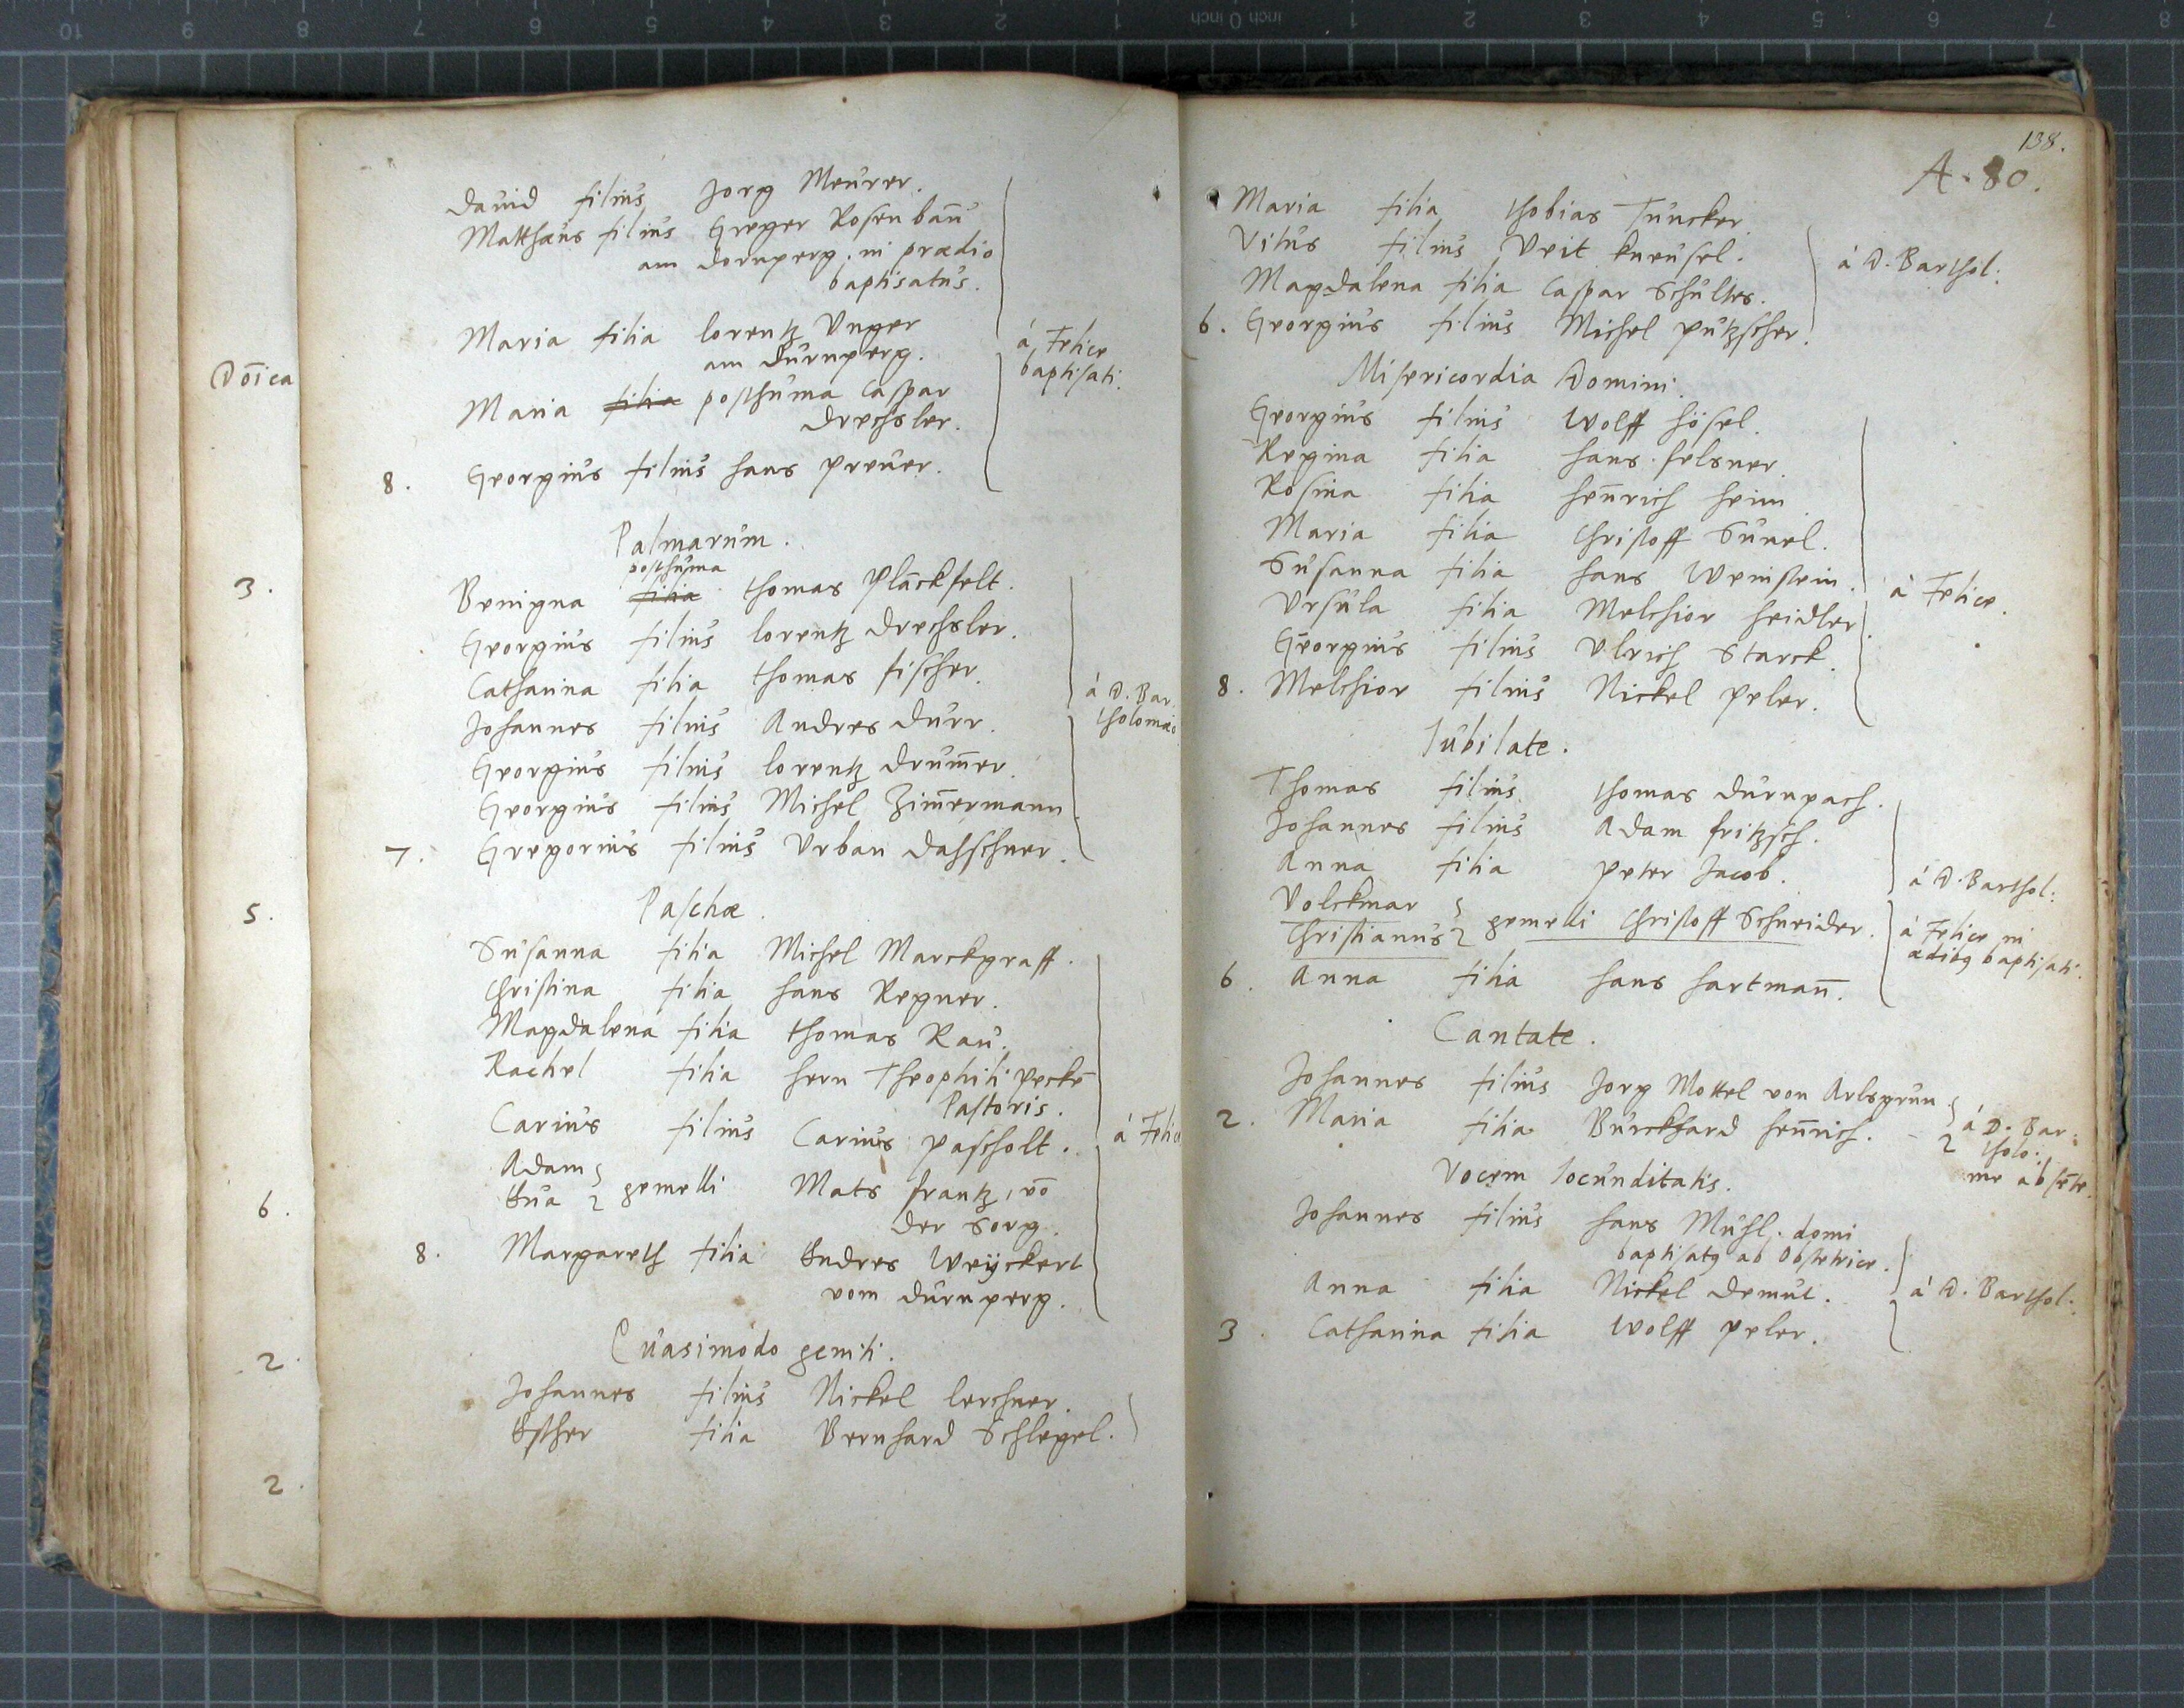 Dauid filius Jorg Meurer.
Matthæus filius Greger Rosenbaū
am Dornperg. in prædio
baptisatus.
Maria filia lorentz Vnger
am Dürnperg.
á Felice
baptisati.
Maria filia posthuma Caspar
Drechsler.
8. Georgius filius hans preuer.
Palmarum.
posthuma
Benigna filia thomas Plāckfelt.
Georgius filius lorentz Drechsler.
Catharina filia thomas fischer.
Johannes filius Andres Durr.
á D. Bar
tholomæo
Georgius filius lorentz Drum̄er.
Georgius filius Michel Zim̄ermann
7. Gregorius filius Vrban Dahschner.
Paschæ.
Susanna filia Michel Marckgraff.
Christina filia hans Regner.
Magdalena filia thomas Rau.
Rachel filia hern Theophili peckē
Pastoris.
Carius filius Carius pascholt.
á Felice
Adam
Eua gemelli Mats frantz, vō
der Sorg.
8. Margareth filia Endres Weyckert
vom Dürnperg.
Quasimodo geniti.
Johannes filius Nickel lerchner.
Esther filia Bernhard Schlegel.
Dōica
3.
5.
6.
2.
2.
138.
A. 80.
Maria filia thobias Tuncker.
Vitus filius Veit kneusel.
Magdalena filia Caspar Schultes.
á D. Barthol:
6. Georgius filius Michel putzscher.
Misericordia Domini.
Georgius filius Wolff hösel.
Regina filia hans felsner.
Rosina filia hēnrich heim
Maria filia Christoff Sunel.
Susanna filia hans Weinstein.
á Felice.
Vrsula filia Melchior heidler.
Georgius filius Vlrich Starck.
8. Melchior filius Nickel peler.
Iubilate.
Thomas filius thomas Dürnpach.
Johannes filius Adam fritzsch.
Anna filia peter Jacob.
á D. Barthol:
Volckmar
Christianus gemelli Christoff Schneider.
á Felice in
ædibg baptisati.
6. Anna filia hans hartmañ.
Cantate.
Johannes filius Jorg Mottel von Arlsgrun
2. Maria filia Burckhard hēnrich.
á D. Bar:
tholo:
me absēte.
Vocem Iocunditatis.
Johannes filius hans Muhl. domi
baptisatg ab Obstetrice.
Anna filia Nickel Demut.
á D. Barthol:
3. Catharina filia Wolff peler.